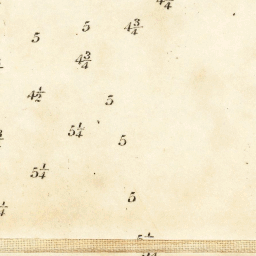 4¾
5
5
4¾
4¾
4½
5
5¼
5
5¼
5